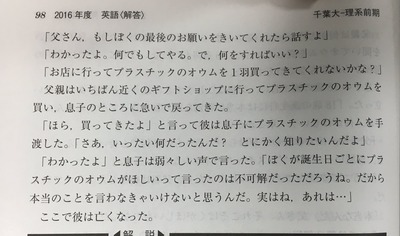 98 2016年度 英語〈解答〉 千葉大-理系前期
「父さん，もしぼくの最後のお願いをきいてくれたら話すよ」
「わかったよ。何でもしてやる。で，何をすればいい？」
「お店に行ってプラスチックのオウムを1羽買ってきてくれないかな？」
父親はいちばん近くのギフトショップに行ってプラスチックのオウムを
買い，息子のところに急いで戻ってきた。
「ほら，買ってきたよ」と言って彼は息子にプラスチックのオウムを手
渡した。「さあ，いったい何だったんだ？ とにかく知りたいんだよ」
「わかったよ」と息子は弱々しい声で言った。「ぼくが誕生日ごとにプラ
スチックのオウムがほしいって言ったのは不可解だっただろうね。だから
本当のことを言わなきゃいけないと思うんだ。実はね，あれは…」
ここで彼は亡くなった。
解説